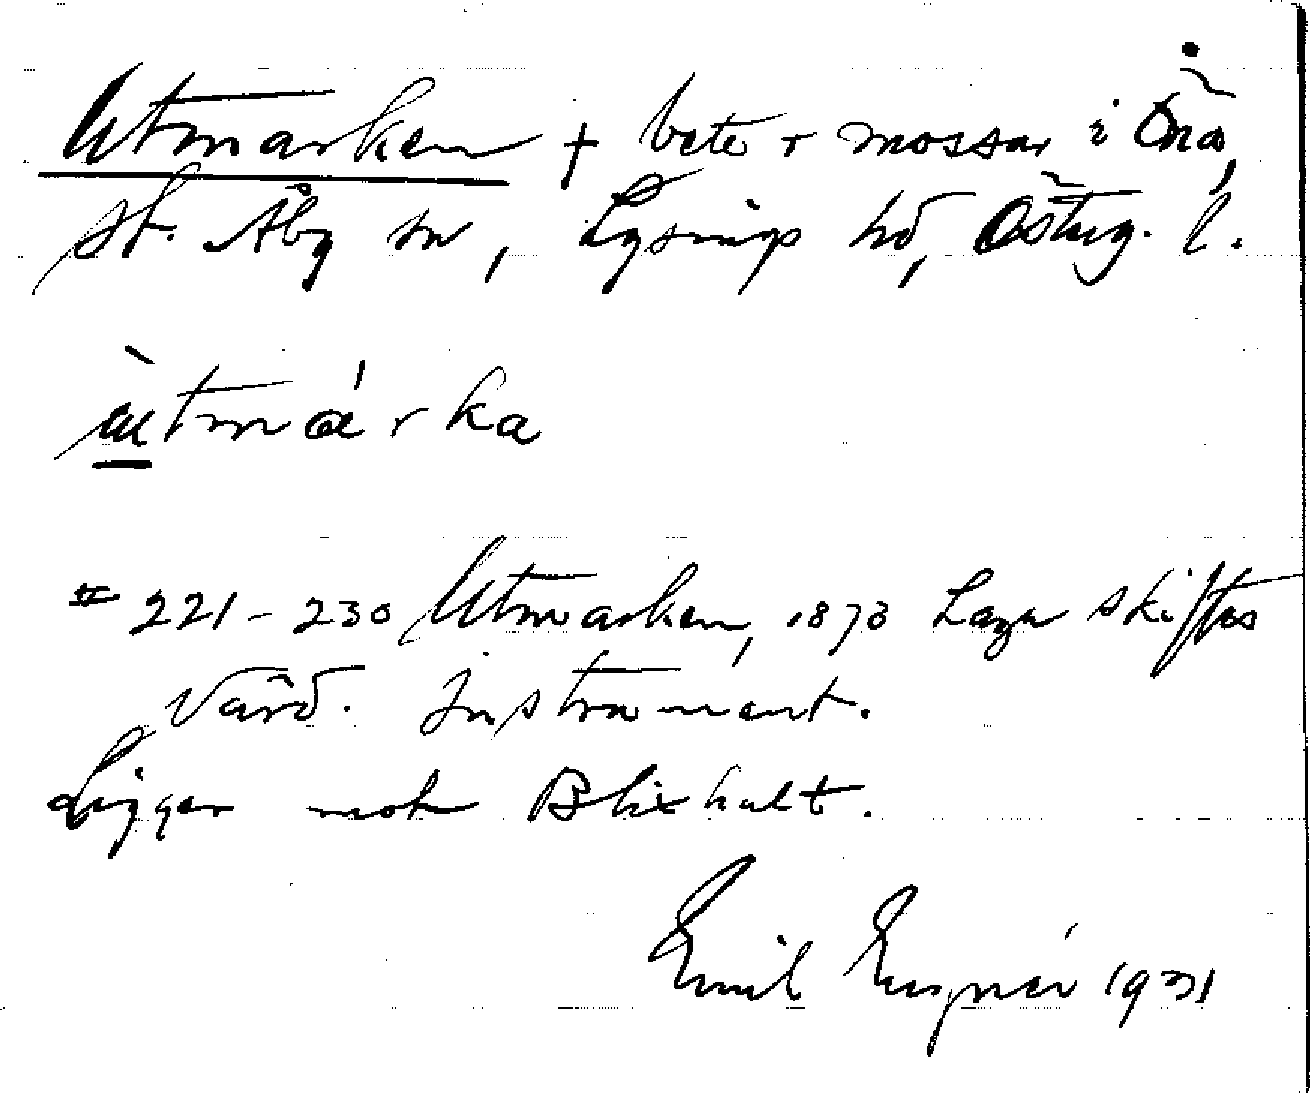 Utmarken + bete + mossar i Öna,
St. Åby sn, Lysings hd, Östergl.
ùtmárka
# 221-230 Utmarken, 1873 Laga skiftes
Värd. Instrument.
Ligger mot Blixhult.
Emil 1931